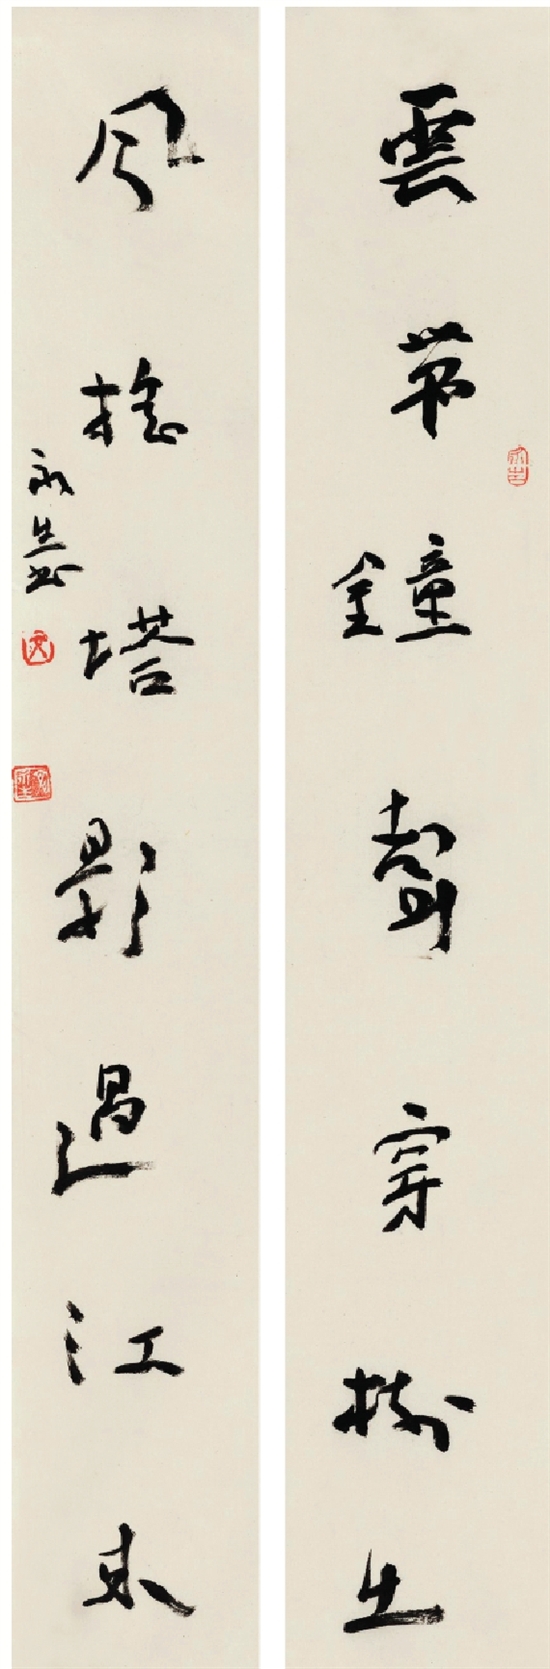 雲帶鐘聲穿樹出
風搖塔影過江來
永生書